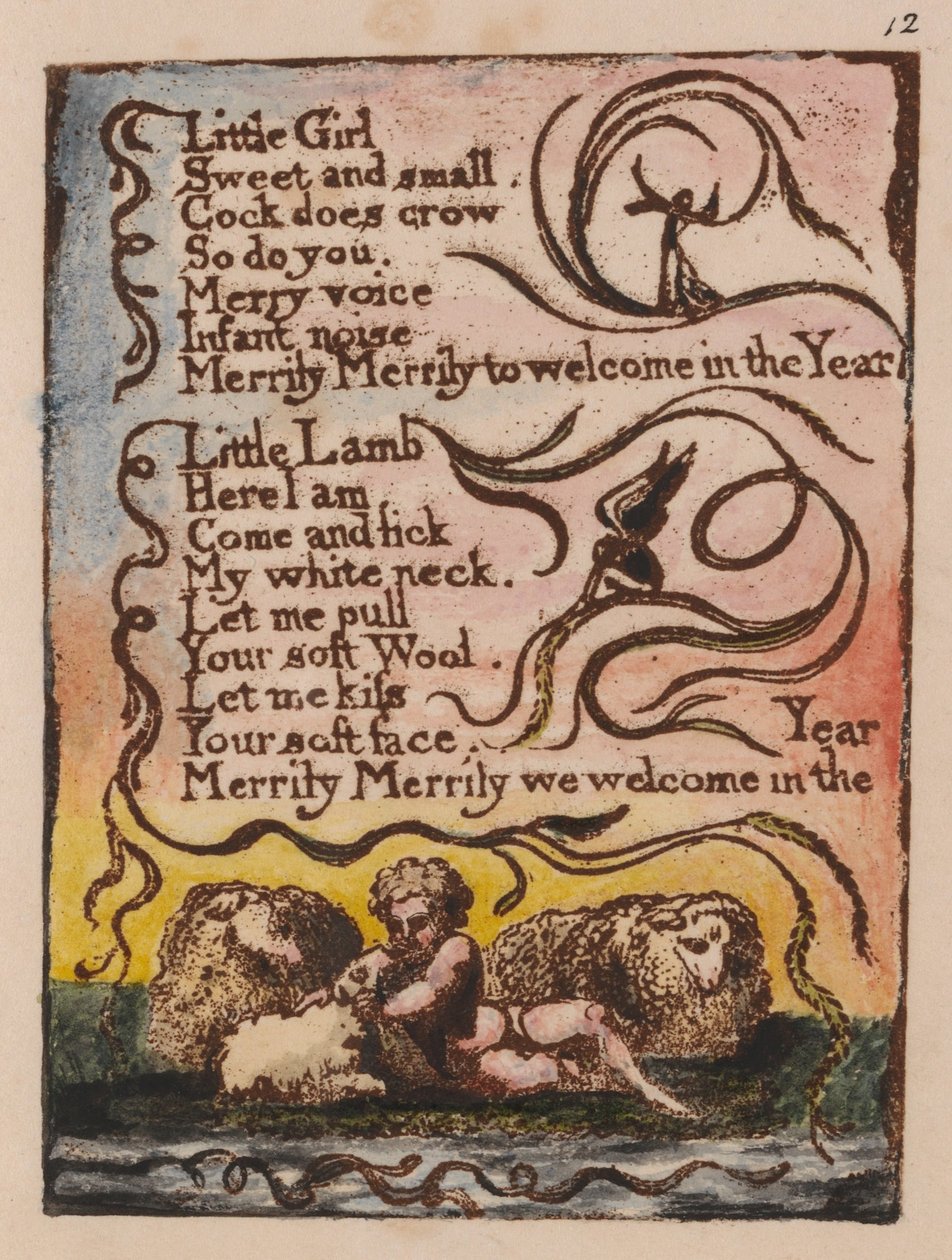 12
Little Girl
Sweet and small.
Cock does crow
So do you.
Merry voice
Infant noise
Merrily Merrily to welcome in the Year
Little Lamb
Here I am,
Come and lick
My white neck.
Let me pull
Your soft Wool.
Let me kiſs
Your soft face.
Year
Merrily Merrily we welcome in the